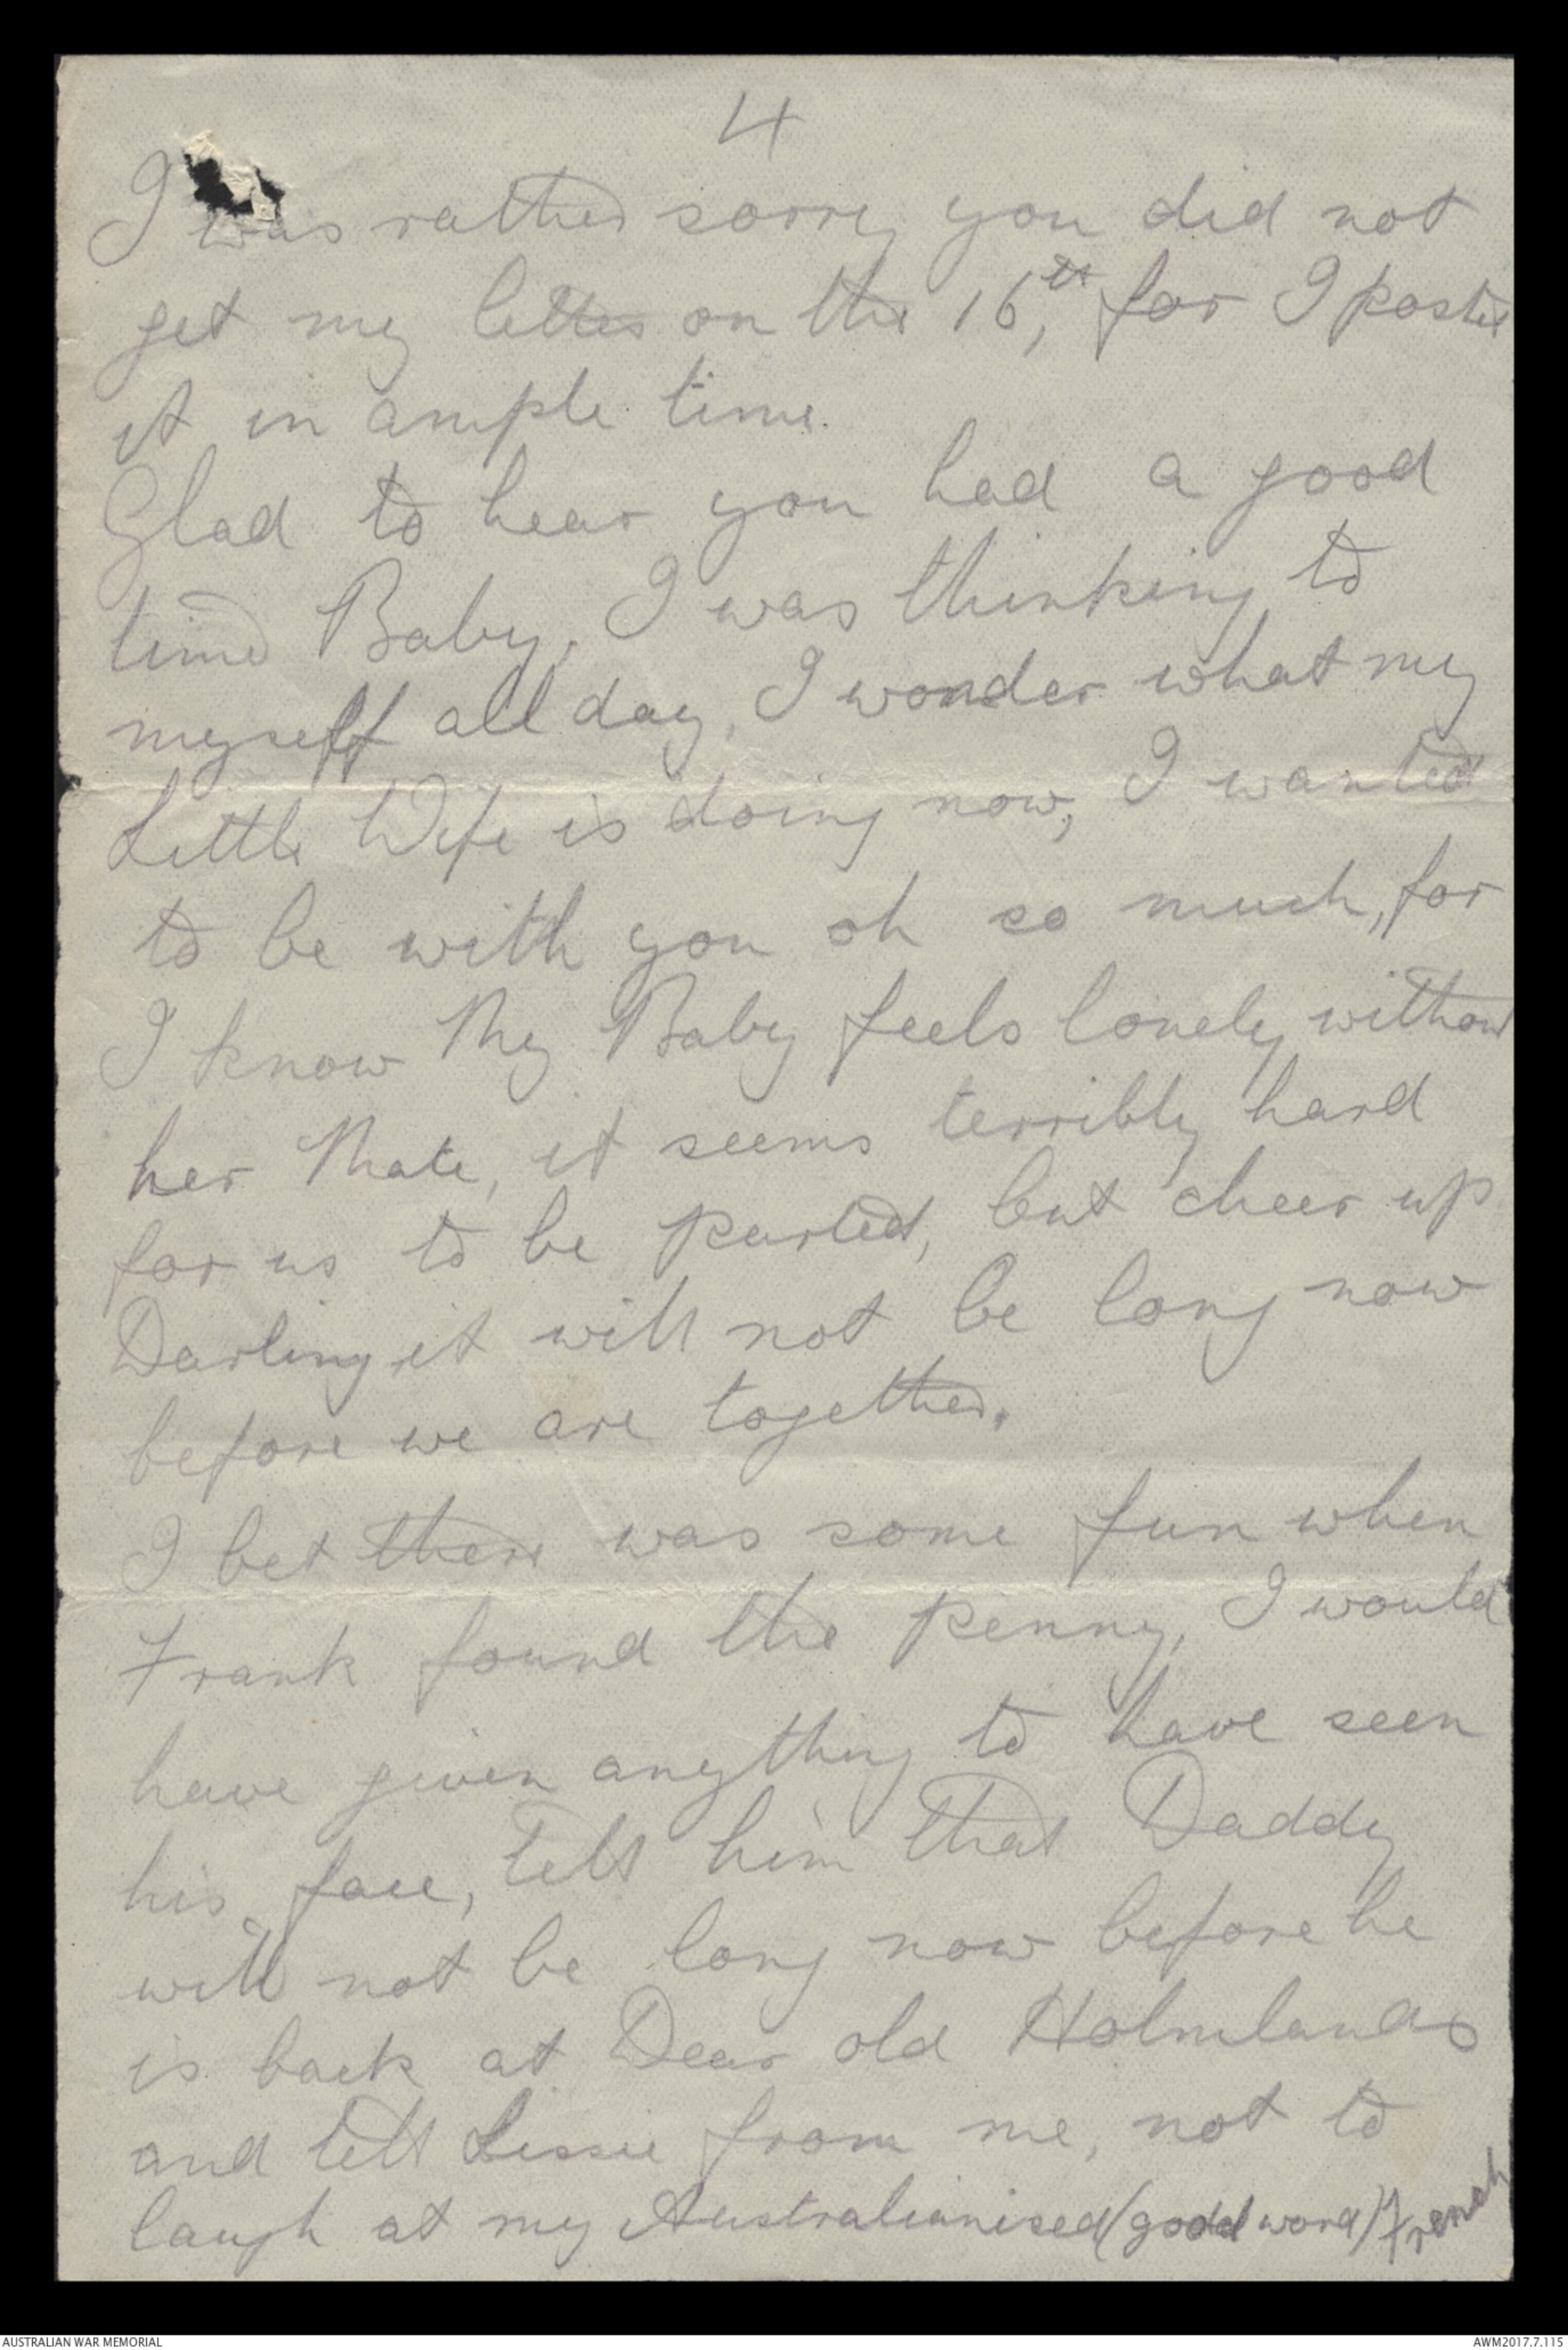 4
I was rather sorry you did not
get my letter on the 16th, for I posted
it in ample time.
Glad to hear you had a good
time Baby, I was thinking to
myself all day, I wonder what my
Little Wife is doing now, I wanted
to be with you oh so much, for
I know My Baby feels lonely without
her Mate, it seems terribly hard
for us to be parted, but cheer up
Darling it will not be long now
before we are together.
I bet there was some fun when
Frank found the penny, I would
have given anything to have seen
his face, tell him that Daddy
will not be long now before he
is back at Dear old Holmlands
and tell Lissie from me, not to
laugh at my Australianised (good word) French
AUSTRALIAN WAR MEMORIAL
AWM2017.7.115